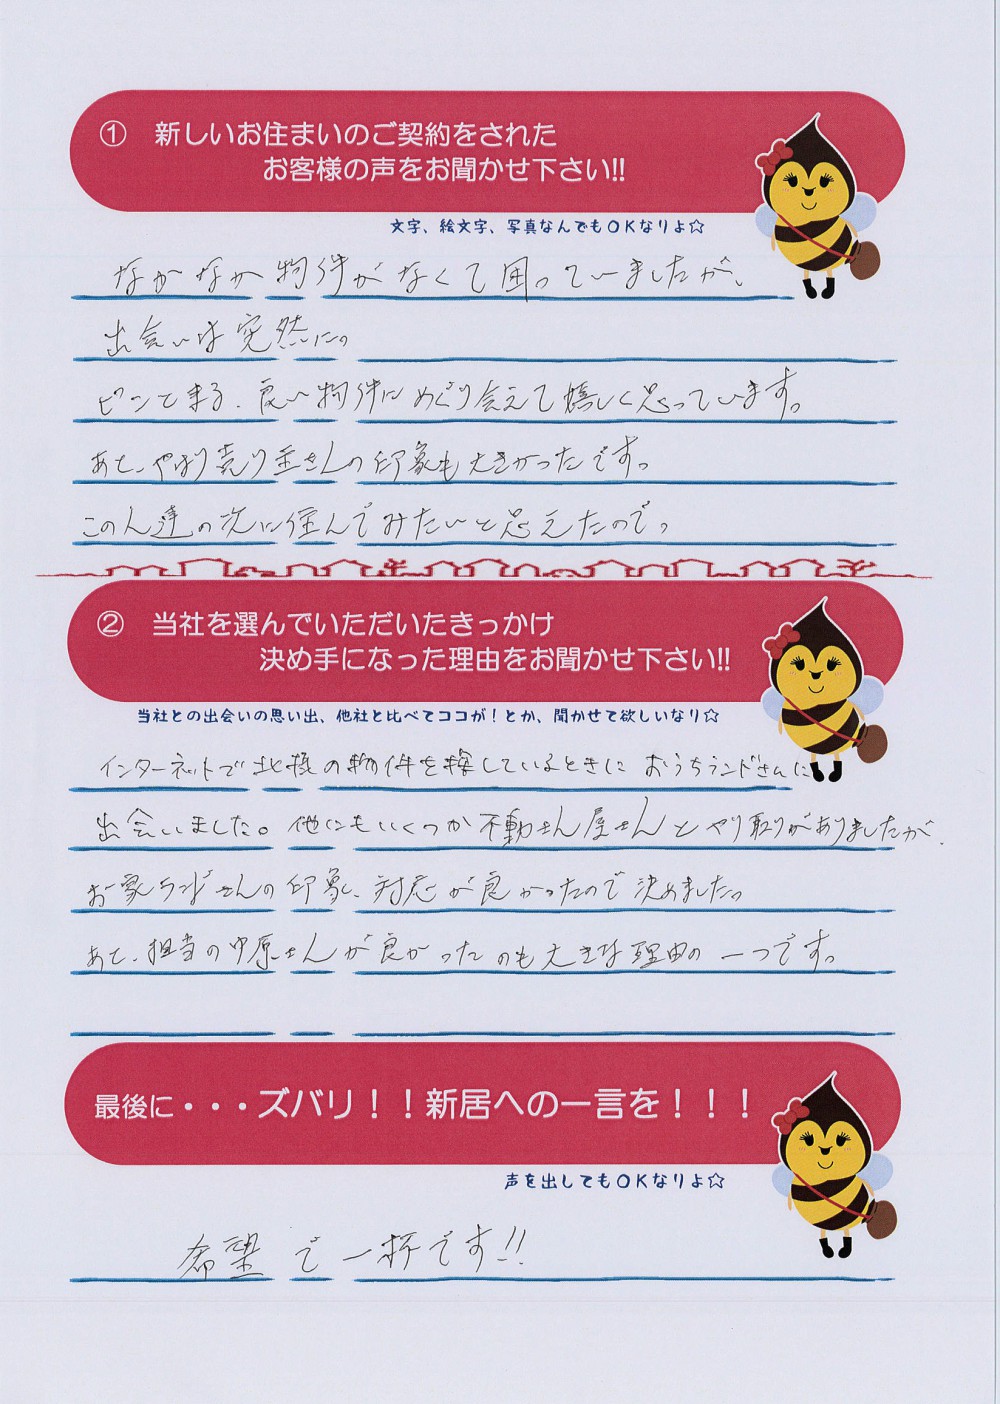 ① 新しいお住まいのご契約をされた
お客様の声をお聞かせ下さい!!
文字、絵文字、写真なんでもOKなりよ☆
なかなか物件がなくて困っていましたが、
出会いは突然に。
ピンとまる、良い物件にめぐり会えて嬉しく思っています。
あと、やはり売り主さんの印象も大きかったです。
この人達の次に住んでみたいと思えたので。
② 当社を選んでいただいたきっかけ
決め手になった理由をお聞かせ下さい!!
当社との出会いの思い出、他社と比べてココが！とか、聞かせて欲しいなり☆
インターネットで北様の物件を探しているときに おうちランドさんに
出会いました。他にもいくつか不動さん屋さんとやり取りがありましたが、
お家ランドさんの印象、対応が良かったので決めました。
あと、担当の中原さんが良かったのも大きな理由の一つです。
最後に・・・ズバリ！！新居への一言を！！！
声を出してもOKなりよ☆
希望で一杯です!!